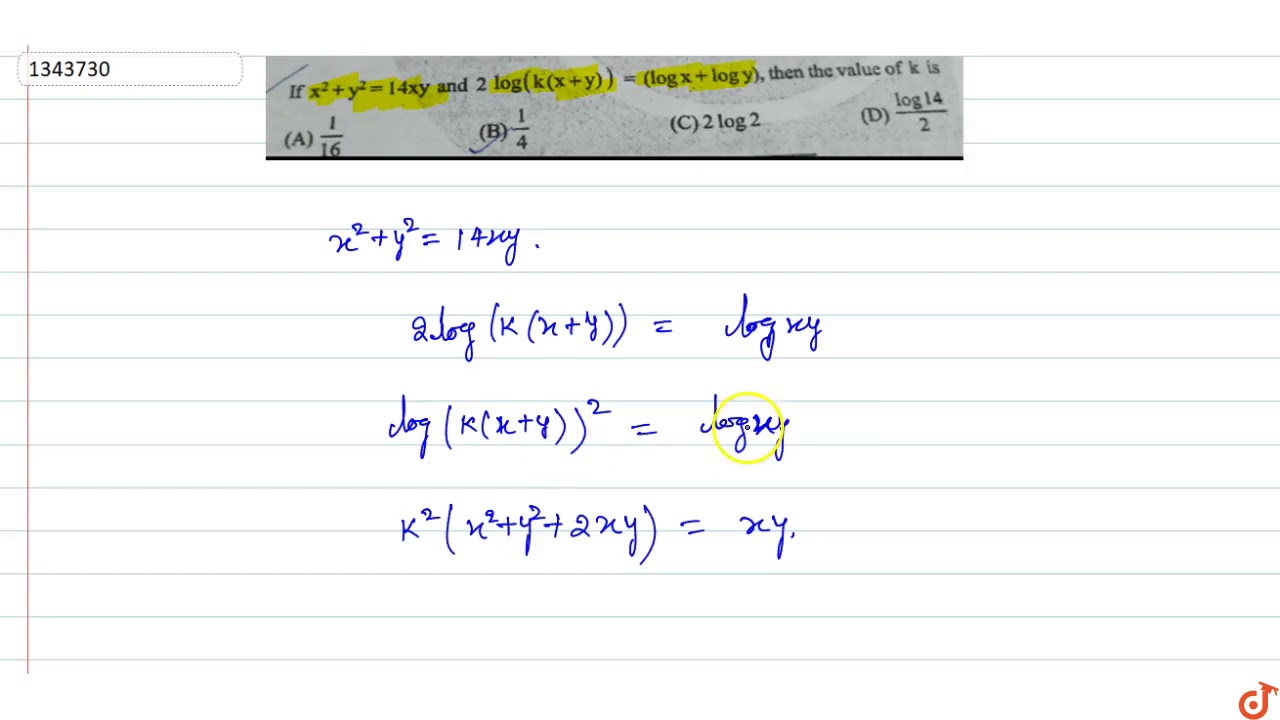 1343730
If x² + y² = 14xy and 2 log(k(x + y)) = (log x + log y), then the value of k is
(A) 1/16 (B) 1/4 (C) 2 log 2 (D) log 14/2
x² + y² = 14xy.
2 log (K (x + y)) = log xy
log (K (x + y))² = log xy
K² (x² + y² + 2xy) = xy.